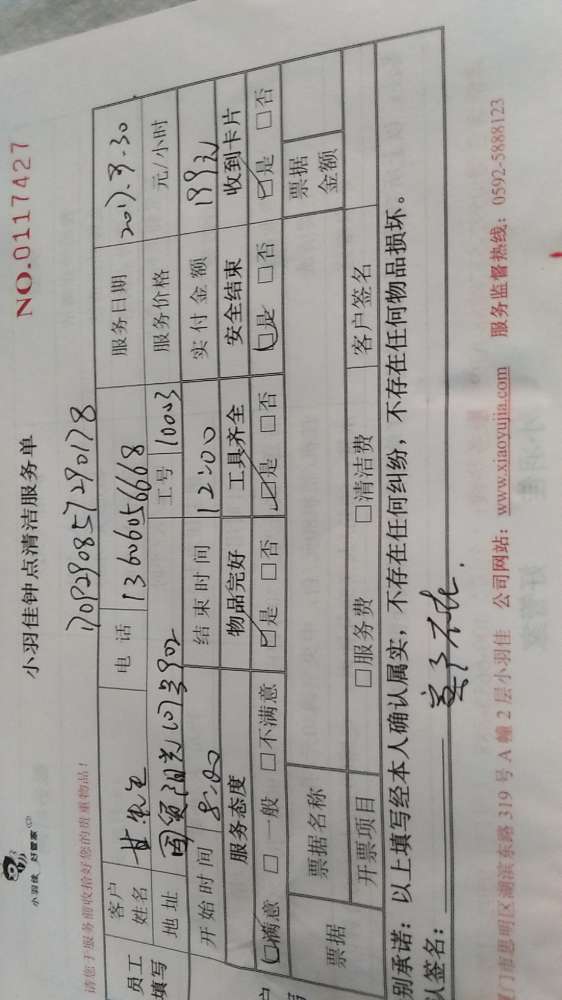 小羽佳 好管家
小羽佳钟点清洁服务单
NO.0117427
请您于服务前收拾好您的贵重物品!
员工填写
客户姓名 甘先生 电话 13606056668 服务日期 2017.9.30
地址 国贸阳光 902 工号 10003 服务价格 元/小时
开始时间 8:00 结束时间 12:00 实付金额 199元
服务态度 物品完好 工具齐全 安全结束 收到卡片
☑满意 □一般 □不满意 ☑是 □否 ☑是 □否 ☑是 □否 ☑是 □否
票据 票据名称 票据金额
开票项目 □服务费 □清洁费 客户签名
别承诺:以上填写经本人确认属实,不存在任何纠纷,不存在任何物品损坏。
人签名:
门市思明区湖滨东路 319 号 A 幢 2 层小羽佳 公司网站:www.xiaoyujia.com 服务监督热线:0592-5888123